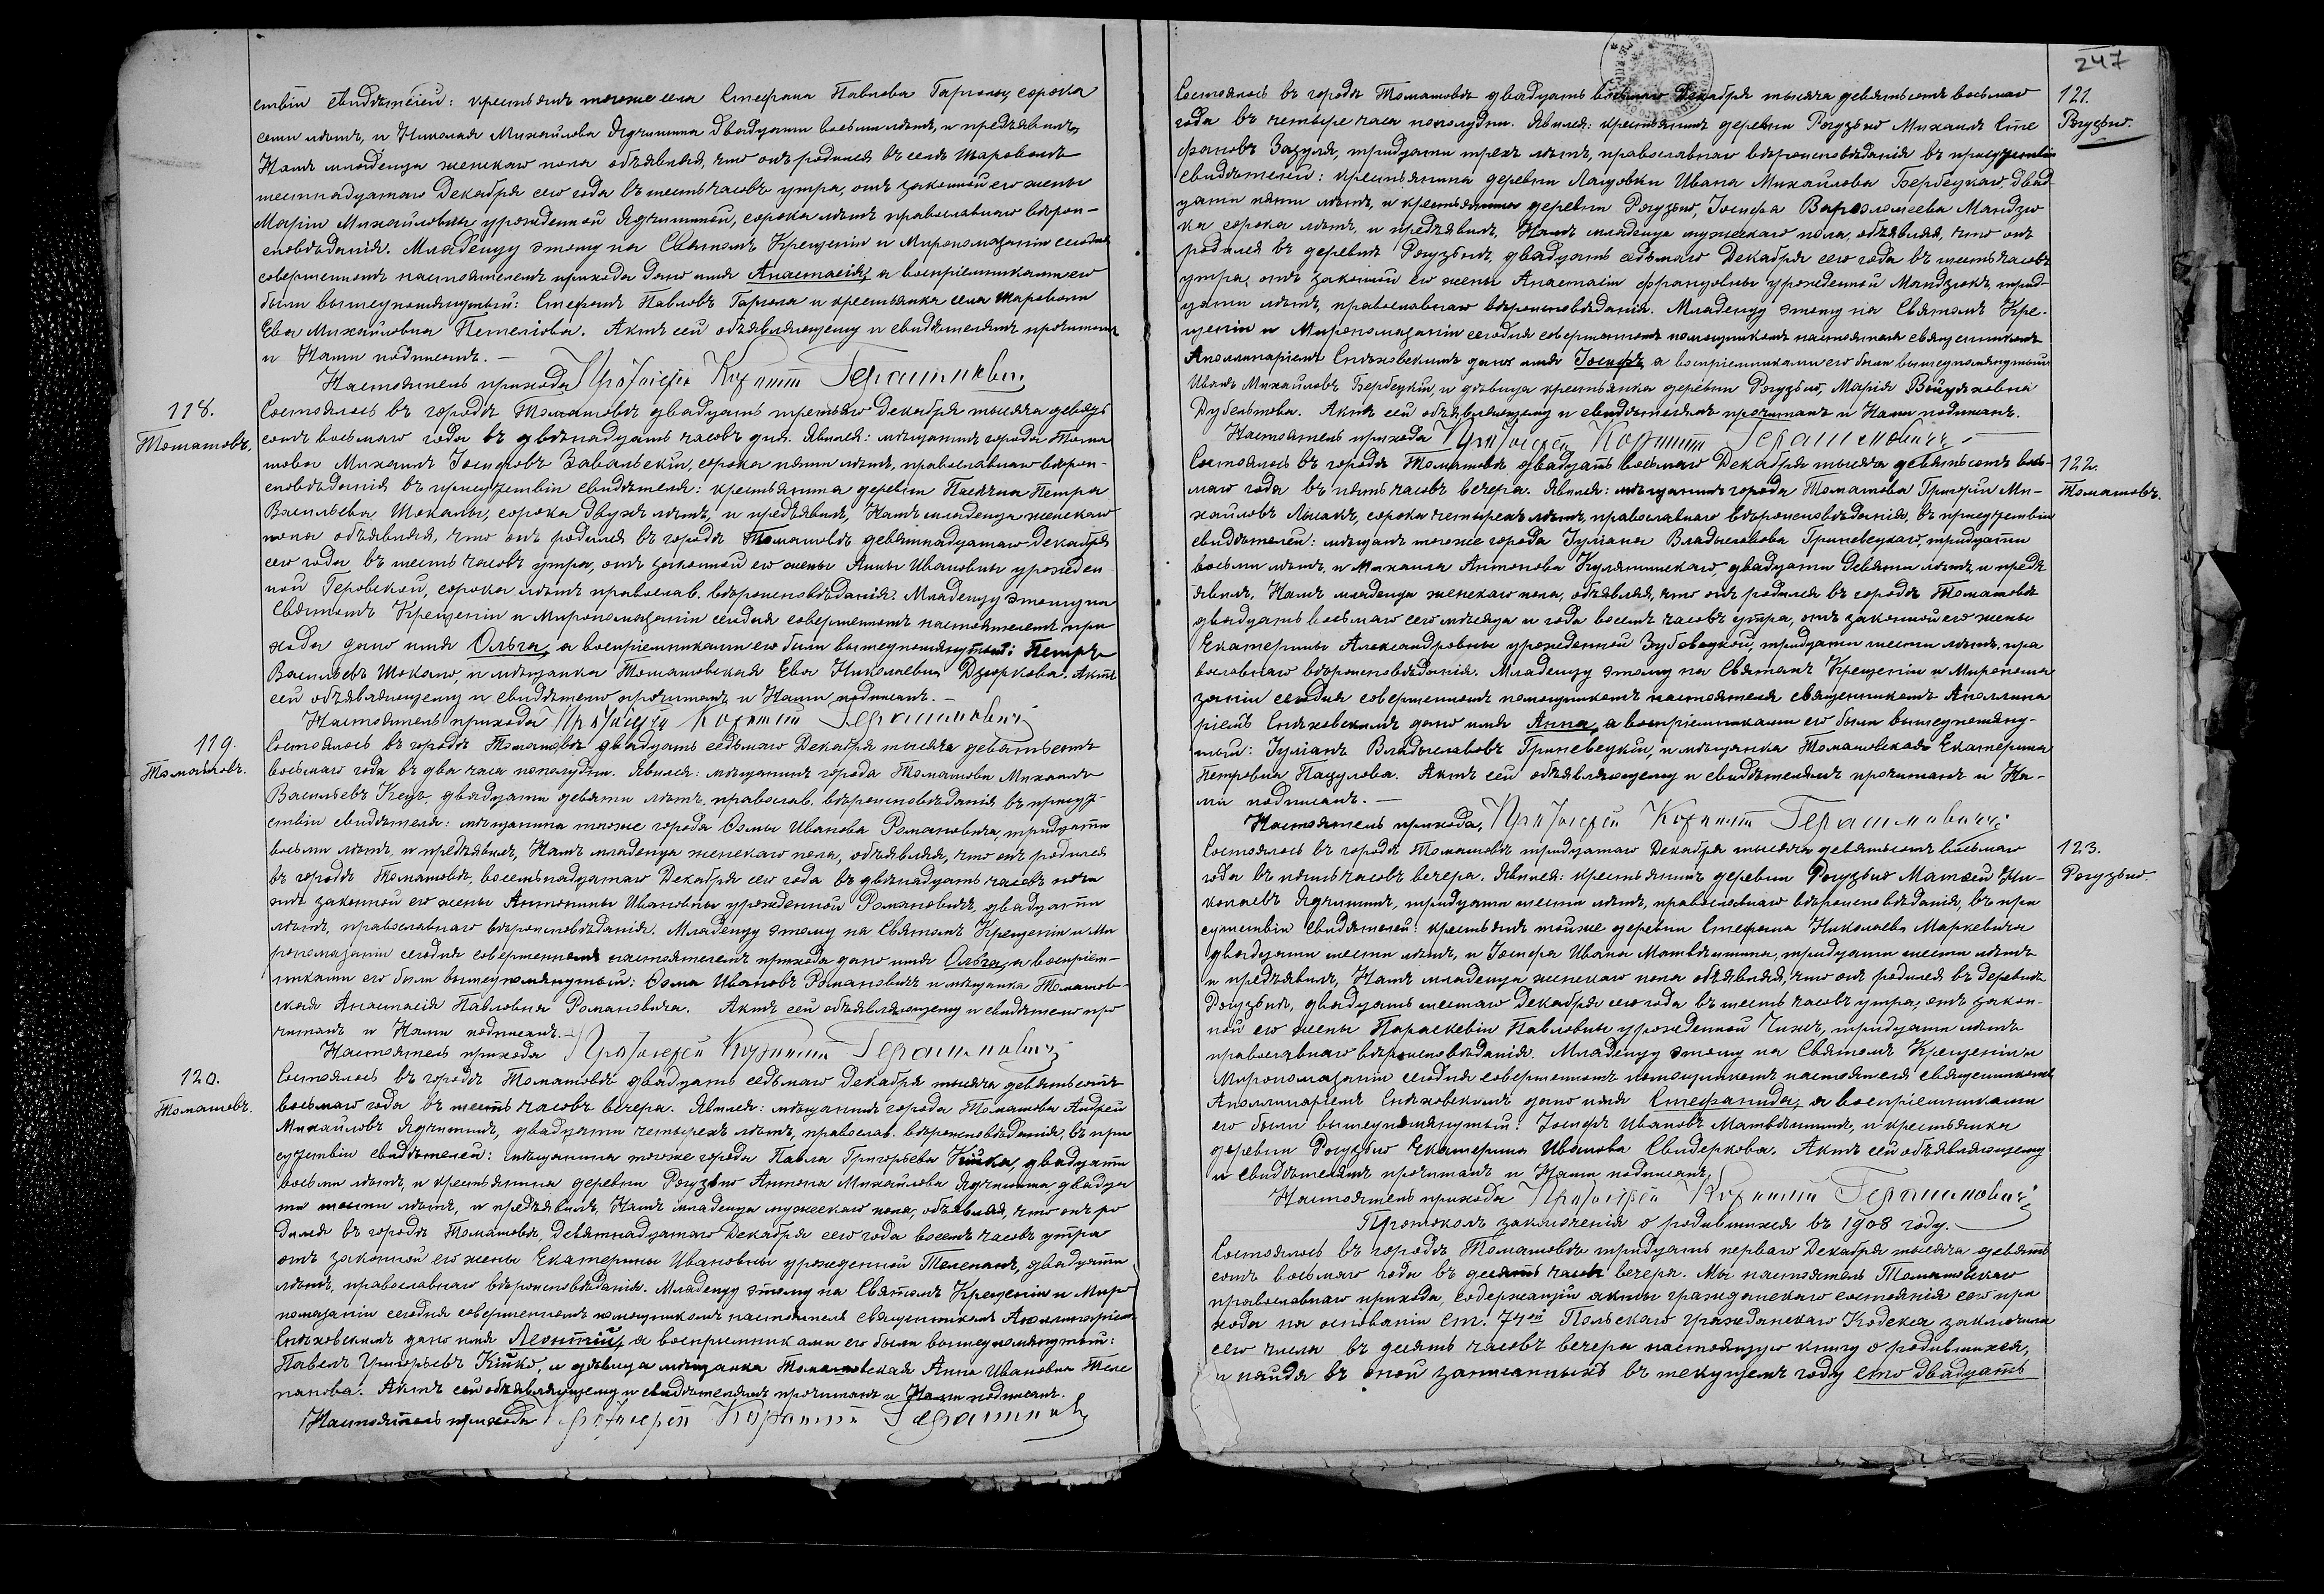 ствіи свидѣтелей: крестьянъ тогоже села Стефана Павлова Гарполы, сорока
семи лѣтъ, и Николая Михайлова Ядчишина двадцати восьми лѣтъ, и предъявилъ
Намъ младенца женскаго пола объявляя, что онъ родился въ селѣ Шароволѣ
шестнадцатаго Декабря сего года въ шесть часовъ утра, отъ законной его жены
Маріи Михайловны урожденной Ядчишиной, сорока лѣтъ православнаго вѣрои-
сповѣданія. Младенцу этому на Святомъ Крещеніи и Миропомазаніи сегодня
совершенномъ настоятелемъ прихода дано имя Анастасія, а воспріемниками его
были вышеупомянутый: Стефанъ Павловъ Гарпола и крестьянка села Шароволи
Ева Михайловна Петелюва. Актъ сей объявляющему и свидѣтелямъ прочитанъ
и Нами подписанъ. —
Настоятель прихода Протоіерей Корнилій Герасимовичъ
118.
Томашовъ.
Состоялось въ городѣ Томашовѣ двадцать третьяго Декабря тысяча девять
сотъ восьмаго года въ двѣнадцать часовъ дня. Явился: мѣщанинъ города Тома
шова Михаилъ Іосифовъ Завальскій, сорока пяти лѣтъ, православнаго вѣрои-
сповѣданія въ присутствіи свидѣтеля: крестьянина деревни Пасѣчна Петра
Васильева Шокалы, сорока двухъ лѣтъ, и предъявилъ, Намъ младенца женскаго
пола объявляя, что онъ родился въ городѣ Томашовѣ девятнадцатаго Декабря
сего года въ шесть часовъ утра, отъ законной его жены Анны Ивановны урожден
ной Геровской, сорока лѣтъ православ. вѣроисповѣданія. Младенцу этому на
Святомъ Крещеніи и Миропомазаніи сегодня совершенномъ настоятелемъ при
хода дано имя Ольга, а воспріемниками его были вышеупомянутый: Петръ
Васильевъ Шокало, и мѣщанка Томашовская Ева Николаевна Дзюркова. Актъ
сей объявляющему и свидѣтелю прочитанъ и Нами подписанъ. —
Настоятель прихода Протоіерей Корнилій Герасимовичъ
119.
Томашовъ.
Состоялось въ городѣ Томашовѣ двадцать седьмаго Декабря тысяча девятьсотъ
восьмаго года въ два часа пополудни. Явился: мѣщанинъ города Томашова Михаилъ
Васильевъ Кецъ, двадцати девяти лѣтъ православ. вѣроисповѣданія въ присут-
ствіи свидѣтеля: мѣщанина тогоже города Ѳомы Иванова Романовича, тридцати
восьми лѣтъ, и предъявилъ, Намъ младенца женскаго пола, объявляя, что онъ родился
въ городѣ Томашовѣ, восемьнадцатаго Декабря сего года въ двѣнадцать часовъ ночи
отъ законной его жены Антонины Ивановны урожденной Романовичъ, двадцати
лѣтъ, православнаго вѣроисповѣданія. Младенцу этому на Святомъ Крещеніи и Ми
ропомазаніи сегодня совершенномъ настоятелемъ прихода дано имя Ольга, а воспріем-
никами его были вышеупомянутый: Ѳома Ивановъ Романовичъ и мѣщанка Томашов-
ская Анастасія Павловна Романовича. Актъ сей объявляющему и свидѣтелю про
читанъ и Нами подписанъ. —
Настоятель прихода Протоіерей Корнилій Герасимовичъ
120.
Томашовъ.
Состоялось въ городѣ Томашовѣ двадцать седьмаго Декабря тысяча девятьсотъ
восьмаго года въ шесть часовъ вечера. Явился: мѣщанинъ города Томашова Андрей
Михайловъ Ядчишинъ, двадцати четырехъ лѣтъ, православ. вѣроисповѣданія, въ при
сутствіи свидѣтелей: мѣщанина тогоже города Павла Григорьева Кійка, двадцати
восьми лѣтъ, и крестьянина деревни Рогузьно Антона Михайлова Ядчишина, двадца
ти шести лѣтъ, и предъявилъ, Намъ младенца мужескаго пола, объявляя, что онъ ро
дился въ городѣ Томашовѣ, девятнадцатаго Декабря сего года восемь часовъ утра
отъ законной его жены Екатерины Ивановны урожденной Телепанъ, двадцати
лѣтъ, православнаго вѣроисповѣданія. Младенцу этому на Святомъ Крещеніи и Миро
помазаніи сегодня совершенномъ помощникомъ настоятеля священникомъ Аполлинаріемъ
Снѣховскимъ дано имя Леонтій, а воспріемниками его были вышеупомянутый:
Павелъ Григорьевъ Кійко, и дѣвица мѣщанка Томашовская Анна Ивановна Теле
панова. Актъ сей объявляющему и свидѣтелямъ прочитанъ и Нами подписанъ.
Настоятель прихода Протоіерей Корнилій Герасимовичъ
247
121.
Рогузьно.
Состоялось въ городѣ Томашовѣ двадцать восьмаго Декабря тысяча девятьсотъ восьмаго
года въ четыре часа пополудни. Явился: крестьянинъ деревни Рогузьно Михаилъ Сте
фановъ Зазуля, тридцати трехъ лѣтъ, православнаго вѣроисповѣданія въ присутствіи
свидѣтелей: крестьянина деревни Лащовки Ивана Михайлова Бербецкаго, двад-
цати пяти лѣтъ, и крестьянина деревни Рогузьно, Іосифа Варѳоломеева Мандзю
ка сорока лѣтъ, и предъявилъ, Намъ младенца мужескаго пола, объявляя, что онъ
родился въ деревнѣ Рогузьнѣ, двадцать седьмаго Декабря сего года въ шесть часовъ
утра, отъ законной его жены Анастасіи Францовны урожденной Мандзюкъ, трид-
цати лѣтъ, православнаго вѣроисповѣданія. Младенцу этому на Святомъ Кре-
щеніи и Миропомазаніи сегодня совершенномъ помощникомъ настоятеля священникомъ
Аполлинаріемъ Снѣховскимъ дано имя Іосифъ, а воспріемниками его были вышеупомянутый
Иванъ Михайловъ Бербецкій, и дѣвица крестьянка деревни Рогузьно, Марія Войцѣховна
Дубельтова. Актъ сей объявляющему и свидѣтелямъ прочитанъ и Нами подписанъ.
Настоятель прихода Протоіерей Корнилій Герасимовичъ
122.
Томашовъ.
Состоялось въ городѣ Томашовѣ двадцать восьмаго Декабря тысяча девятьсотъ вось-
маго года въ пять часовъ вечера. Явился: мѣщанинъ города Томашова Григорій Ми-
хайловъ Лысакъ, сорока четырехъ лѣтъ, православнаго вѣроисповѣданія, въ присутствіи
свидѣтелей: мѣщанъ тогоже города Іуліана Владыславова Гриневецкаго, тридцати
восьми лѣтъ, и Михаила Антонова Кулятинскаго, двадцати девяти лѣтъ, и предъ
явилъ, Намъ младенца женскаго пола, объявляя, что онъ родился въ городѣ Томашовѣ
двадцать восьмаго сего мѣсяца и года восемь часовъ утра, отъ законной его жены
Екатерины Александровны урожденной Зубовецкой, тридцати шести лѣтъ, пра
вославнаго вѣроисповѣданія. Младенцу этому на Святомъ Крещеніи и Миропома
заніи сегодня совершенномъ помощникомъ настоятеля священникомъ Аполлина
ріемъ Снѣховскимъ дано имя Анна, а воспріемниками его были вышеупомяну-
тый: Іуліанъ Владыславовъ Гриневецкій, и мѣщанка Томашовская Екатерина
Петровна Пацулова. Актъ сей объявляющему и свидѣтелямъ прочитанъ и На-
ми подписанъ. —
Настоятель прихода, Протоіерей Корнилій Герасимовичъ
123.
Рогузьно.
Состоялось въ городѣ Томашовѣ тридцатаго Декабря тысяча девятьсотъ восьмаго
года въ пять часовъ вечера. Явился: крестьянинъ деревни Рогузьно Матѳей Ни-
колаевъ Ядчишинъ, тридцати шести лѣтъ, православнаго вѣроисповѣданія, въ при
сутствіи свидѣтелей: крестьянъ тойже деревни Стефана Николаева Маркевича
двадцати шести лѣтъ, и Іосифа Ивана Матвѣишина, тридцати шести лѣтъ
и предъявилъ, Намъ младенца женскаго пола объявляя, что онъ родился въ деревнѣ
Рогузьнѣ, двадцать шестаго Декабря сего года въ шесть часовъ утра, отъ закон-
ной его жены Параскевіи Павловны урожденной Чижъ, тридцати лѣтъ
православнаго вѣроисповѣданія. Младенцу этому на Святомъ Крещеніи и
Миропомазаніи сегодня совершенномъ помощникомъ настоятеля священникомъ
Аполлинаріемъ Снѣховскимъ дано имя Стефанида, а воспріемниками
его были вышеупомянутый: Іосифъ Ивановъ Матвѣишинъ, и крестьянка
деревни Рогузьно Екатерина Иванова Свидеркова. Актъ сей объявляющему
и свидѣтелямъ прочитанъ и Нами подписанъ.
Настоятель прихода Протоіерей Корнилій Герасимовичъ
Протоколъ заключенія о родившихся въ 1908 году.
Состоялось въ городѣ Томашовѣ тридцать перваго Декабря тысяча девять
сотъ восьмаго года въ десять часов вечера. Мы настоятель Томашовскаго
православнаго прихода, содержащій акты гражданскаго состоянія сего при
хода на основаніи ст. 74ой Польскаго Гражданскаго Кодекса заключили
сего числа въ десять часовъ вечера настоящую книгу о родившихся,
и найдя въ оной записанныхъ въ текущемъ году сто двадцать